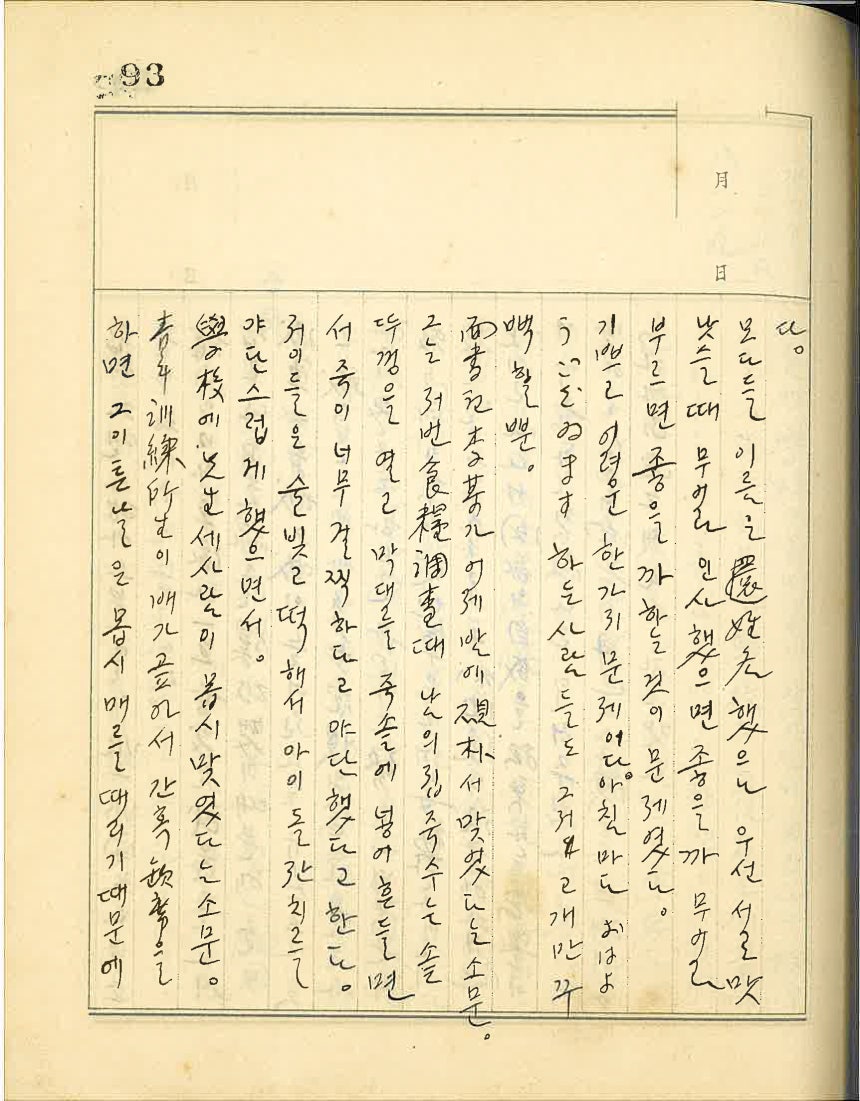 93
月 日
다。
모다들 이름을 還姓名 했으나 우선 서로 맛
낫슬 때 무어라 인사했으면 좋을까 무어라
부르면 좋을까 하는 것이 문제였다。
기쁘고 어려운 한가지 문제이다。 아침마다 おはよ
うございます 하든 사람들도 그저 고개만 꾸
벅할 뿐。
面書記 李某가 어제밤에 碩朴서 맞었다는 소문。
그는 저번 食糧調査때 남의집 죽수는 솥
두껑을 열고 막대를 죽솥에 넣어 흔들면
서 죽이 너무 걸찍하다고 야단했다고 한다。
저이들은 술빚고 떡해서 아이 돌잔치를
야단스럽게 했으면서。
學校에 先生 세사람이 몹시 맞었다는 소문。
靑年訓練所生이 배가 곺아서 간혹 缺席을
하면 그이튼날은 몹시 매를 때리기때문에